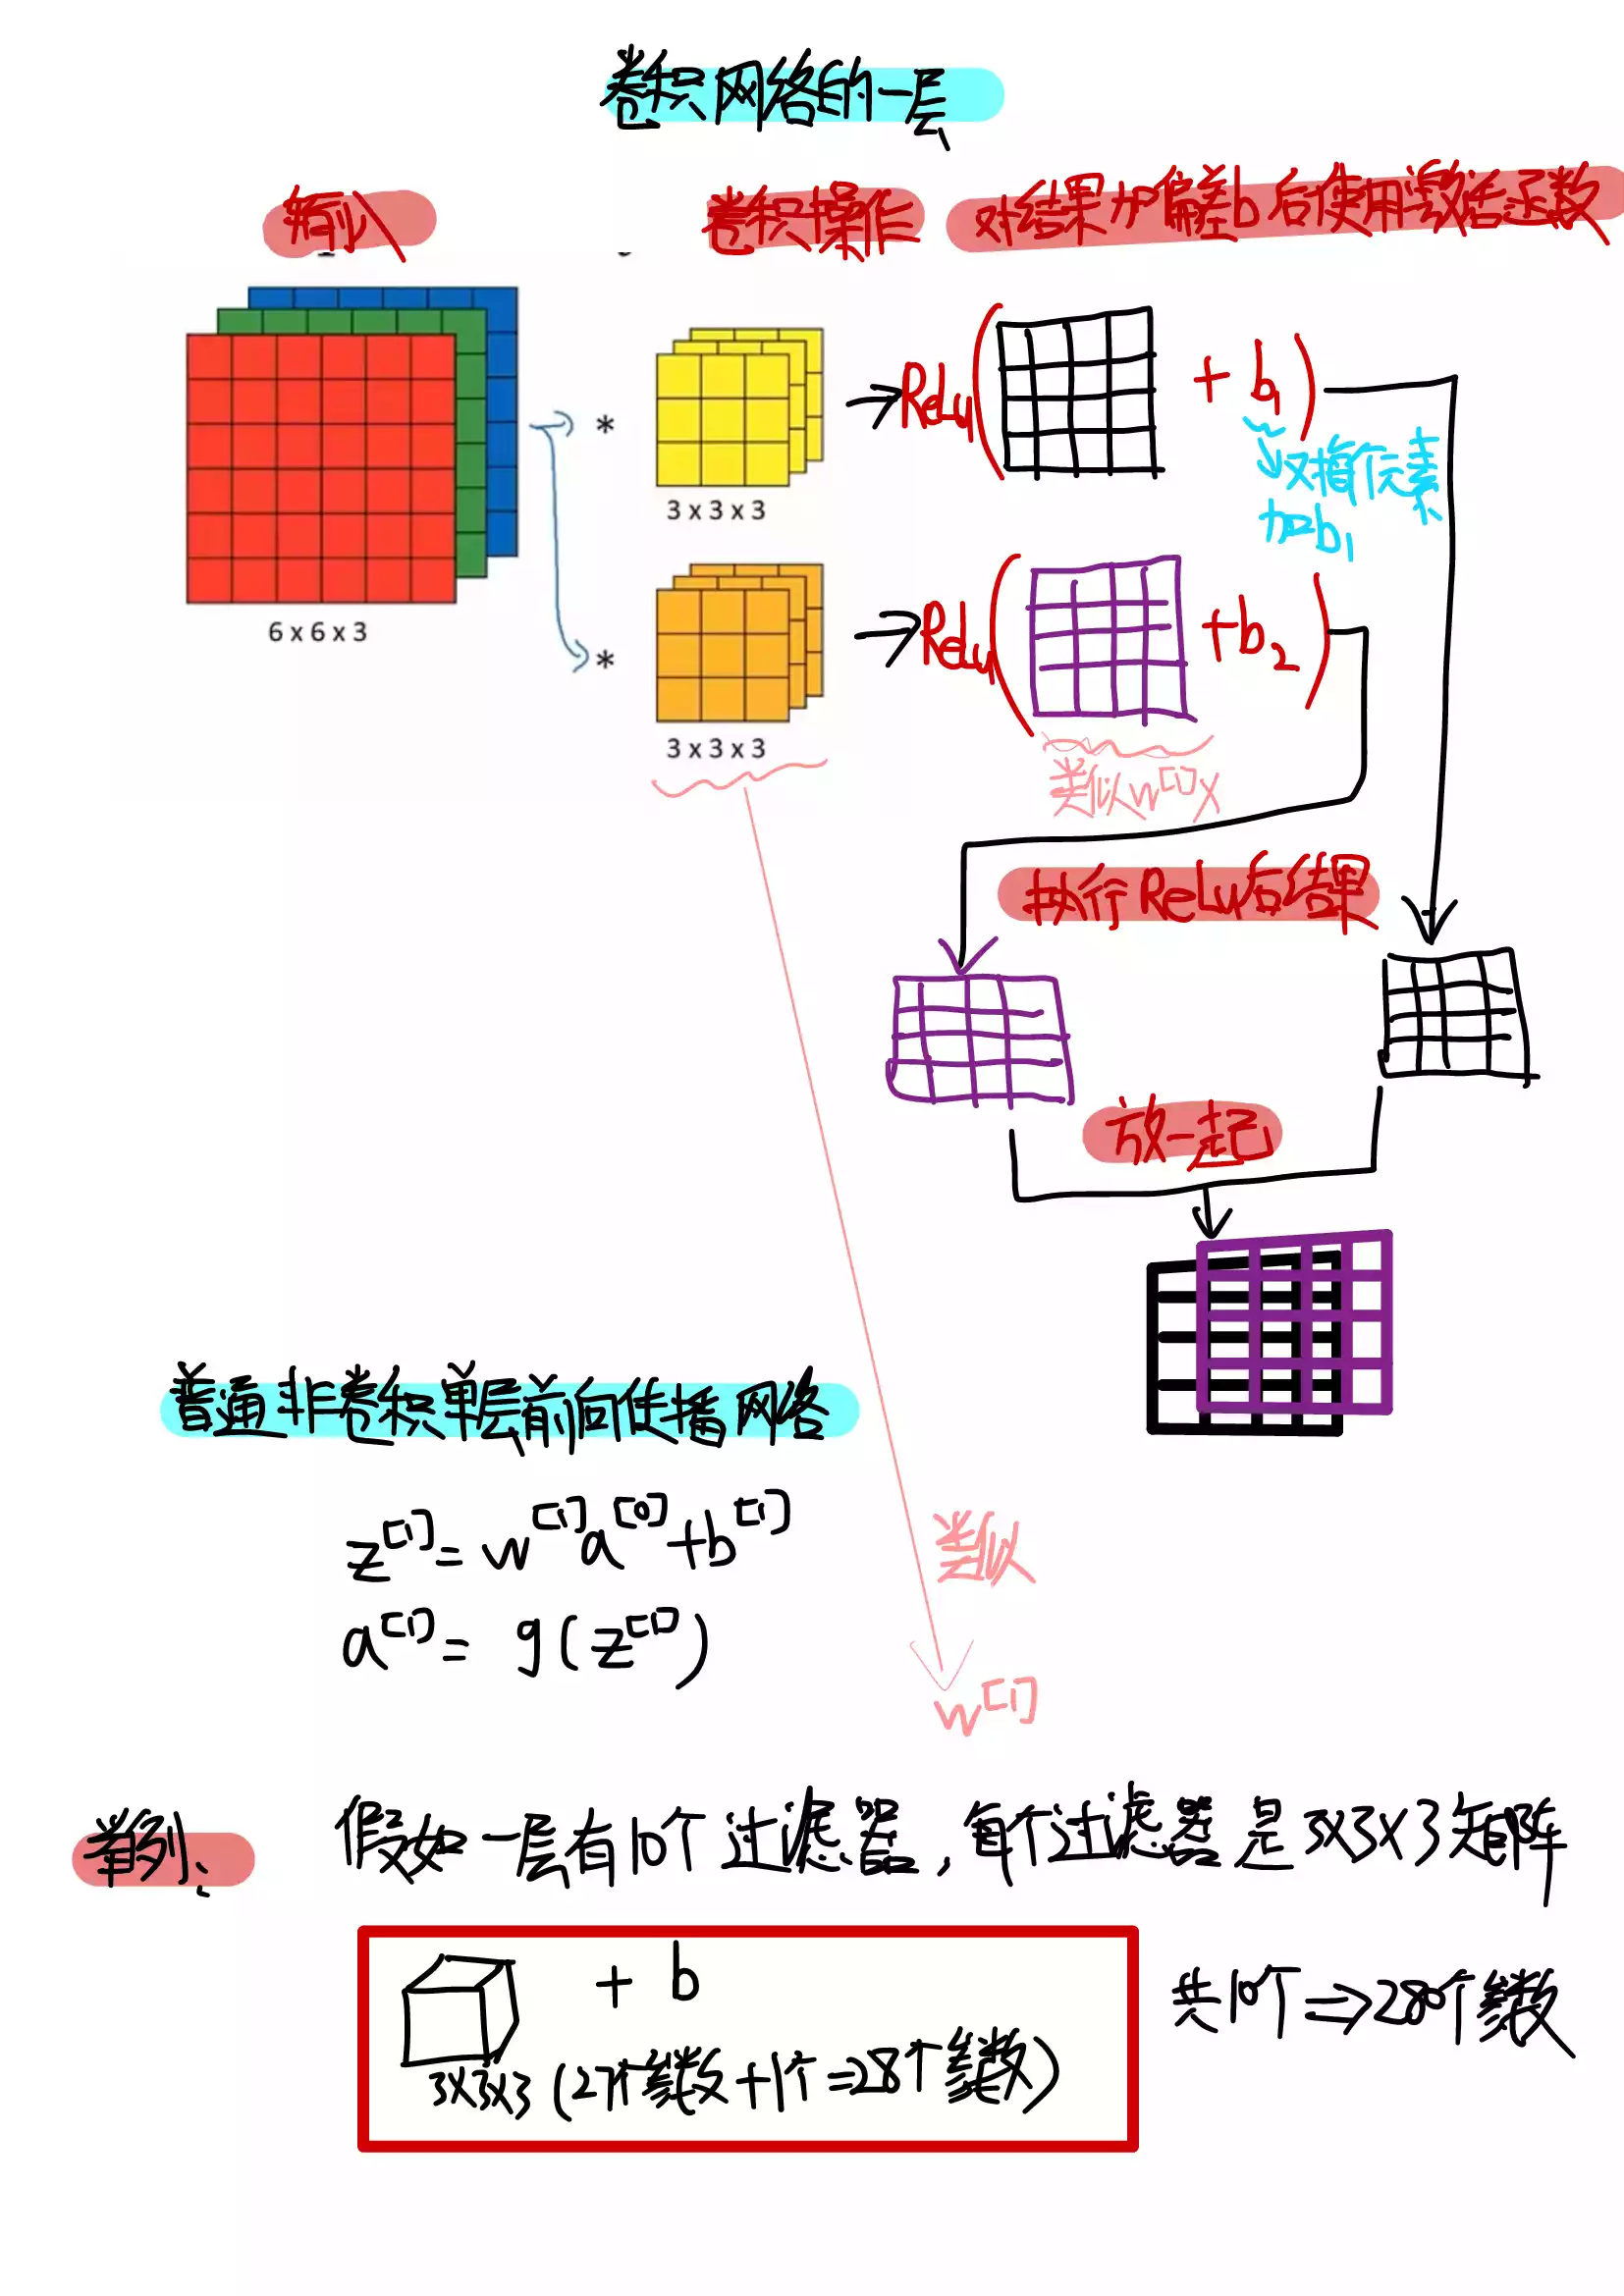 卷积网络的一层
输入
卷积操作
对结果加偏差b后使用激活函数
6 x 6 x 3
*
3 x 3 x 3
→ReLu( + b1)
对每个元素
加b1
*
3 x 3 x 3
→ReLu( +b2)
类似w[1]x
执行ReLu后结果
放一起
普通非卷积单层前向传播网络
z[1]= w[1]a[0]+b[1]
a[1]= g(z[1])
类似
w[1]
举例:
假如一层有10个过滤器,每个过滤器是3x3x3矩阵
+ b
3x3x3 (27个参数+1个=28个参数)
共10个⇒280个参数